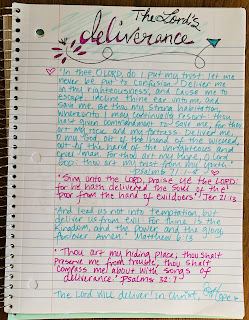 The Lord's
deliverance
"In thee O LORD, do I put my trust: let me
never be put to confusion. Deliver me
in thy righteousness, and cause me to
escape: incline thine ear unto me and
save me. Be thou my strong habitation,
whereunto I may continually resort: thou
hast given commandment to save me; for thou
art my rock and my fortress. Deliver me,
O my God, out of the hand of the wicked,
out of the hand of the unrighteous and
cruel man. For thou art my hope, O Lord
GOD: thou art my trust from my youth."
-psalms 71:1-5
"Sing unto the LORD, praise ye the LORD:
for he hath delivered the soul of the
poor from the hand of evildoers" Jer.
"And lead us not into temptation, but
deliver us from evil: For thine is the
Kingdom, and the power and the glory,
forever. Amen." Matthew 6:13
"Thou art my hiding place; thou shalt
preserve me from trouble; thou shalt
compass me about with songs of
deliverance." Psalms 32:7
The Lord will deliver! In Christ,